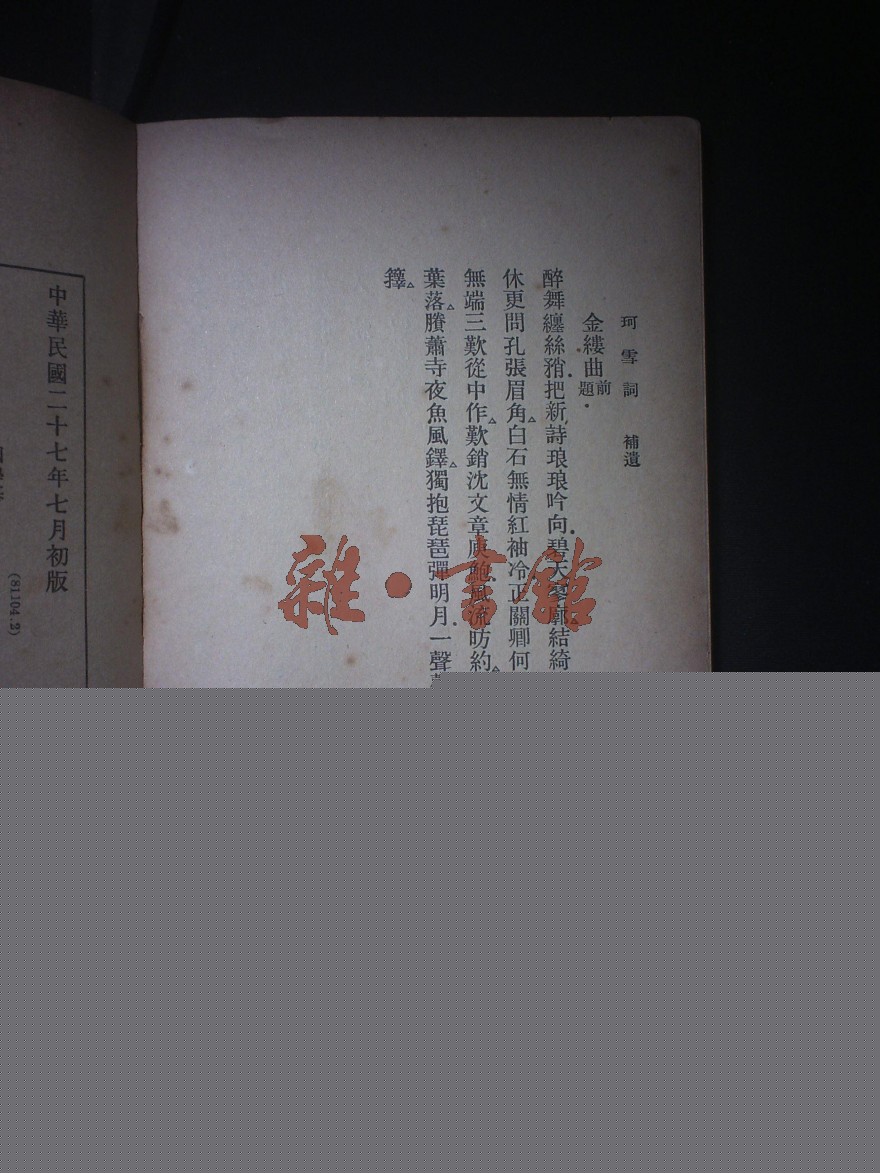 珂雪詞 補遺
金縷曲 前題
醉舞纏絲矟把新詩琅琅吟向碧天寥廓結綺
休更問孔張眉角白石無情紅袖冷正關卿何
無端三歎從中作歎銷沈文章庾鮑風流昉約
葉落賸蕭寺夜魚風鐸獨抱琵琶彈明月一聲
籜
中華民國二十七年七月初版
(81104.3)
雜·書館